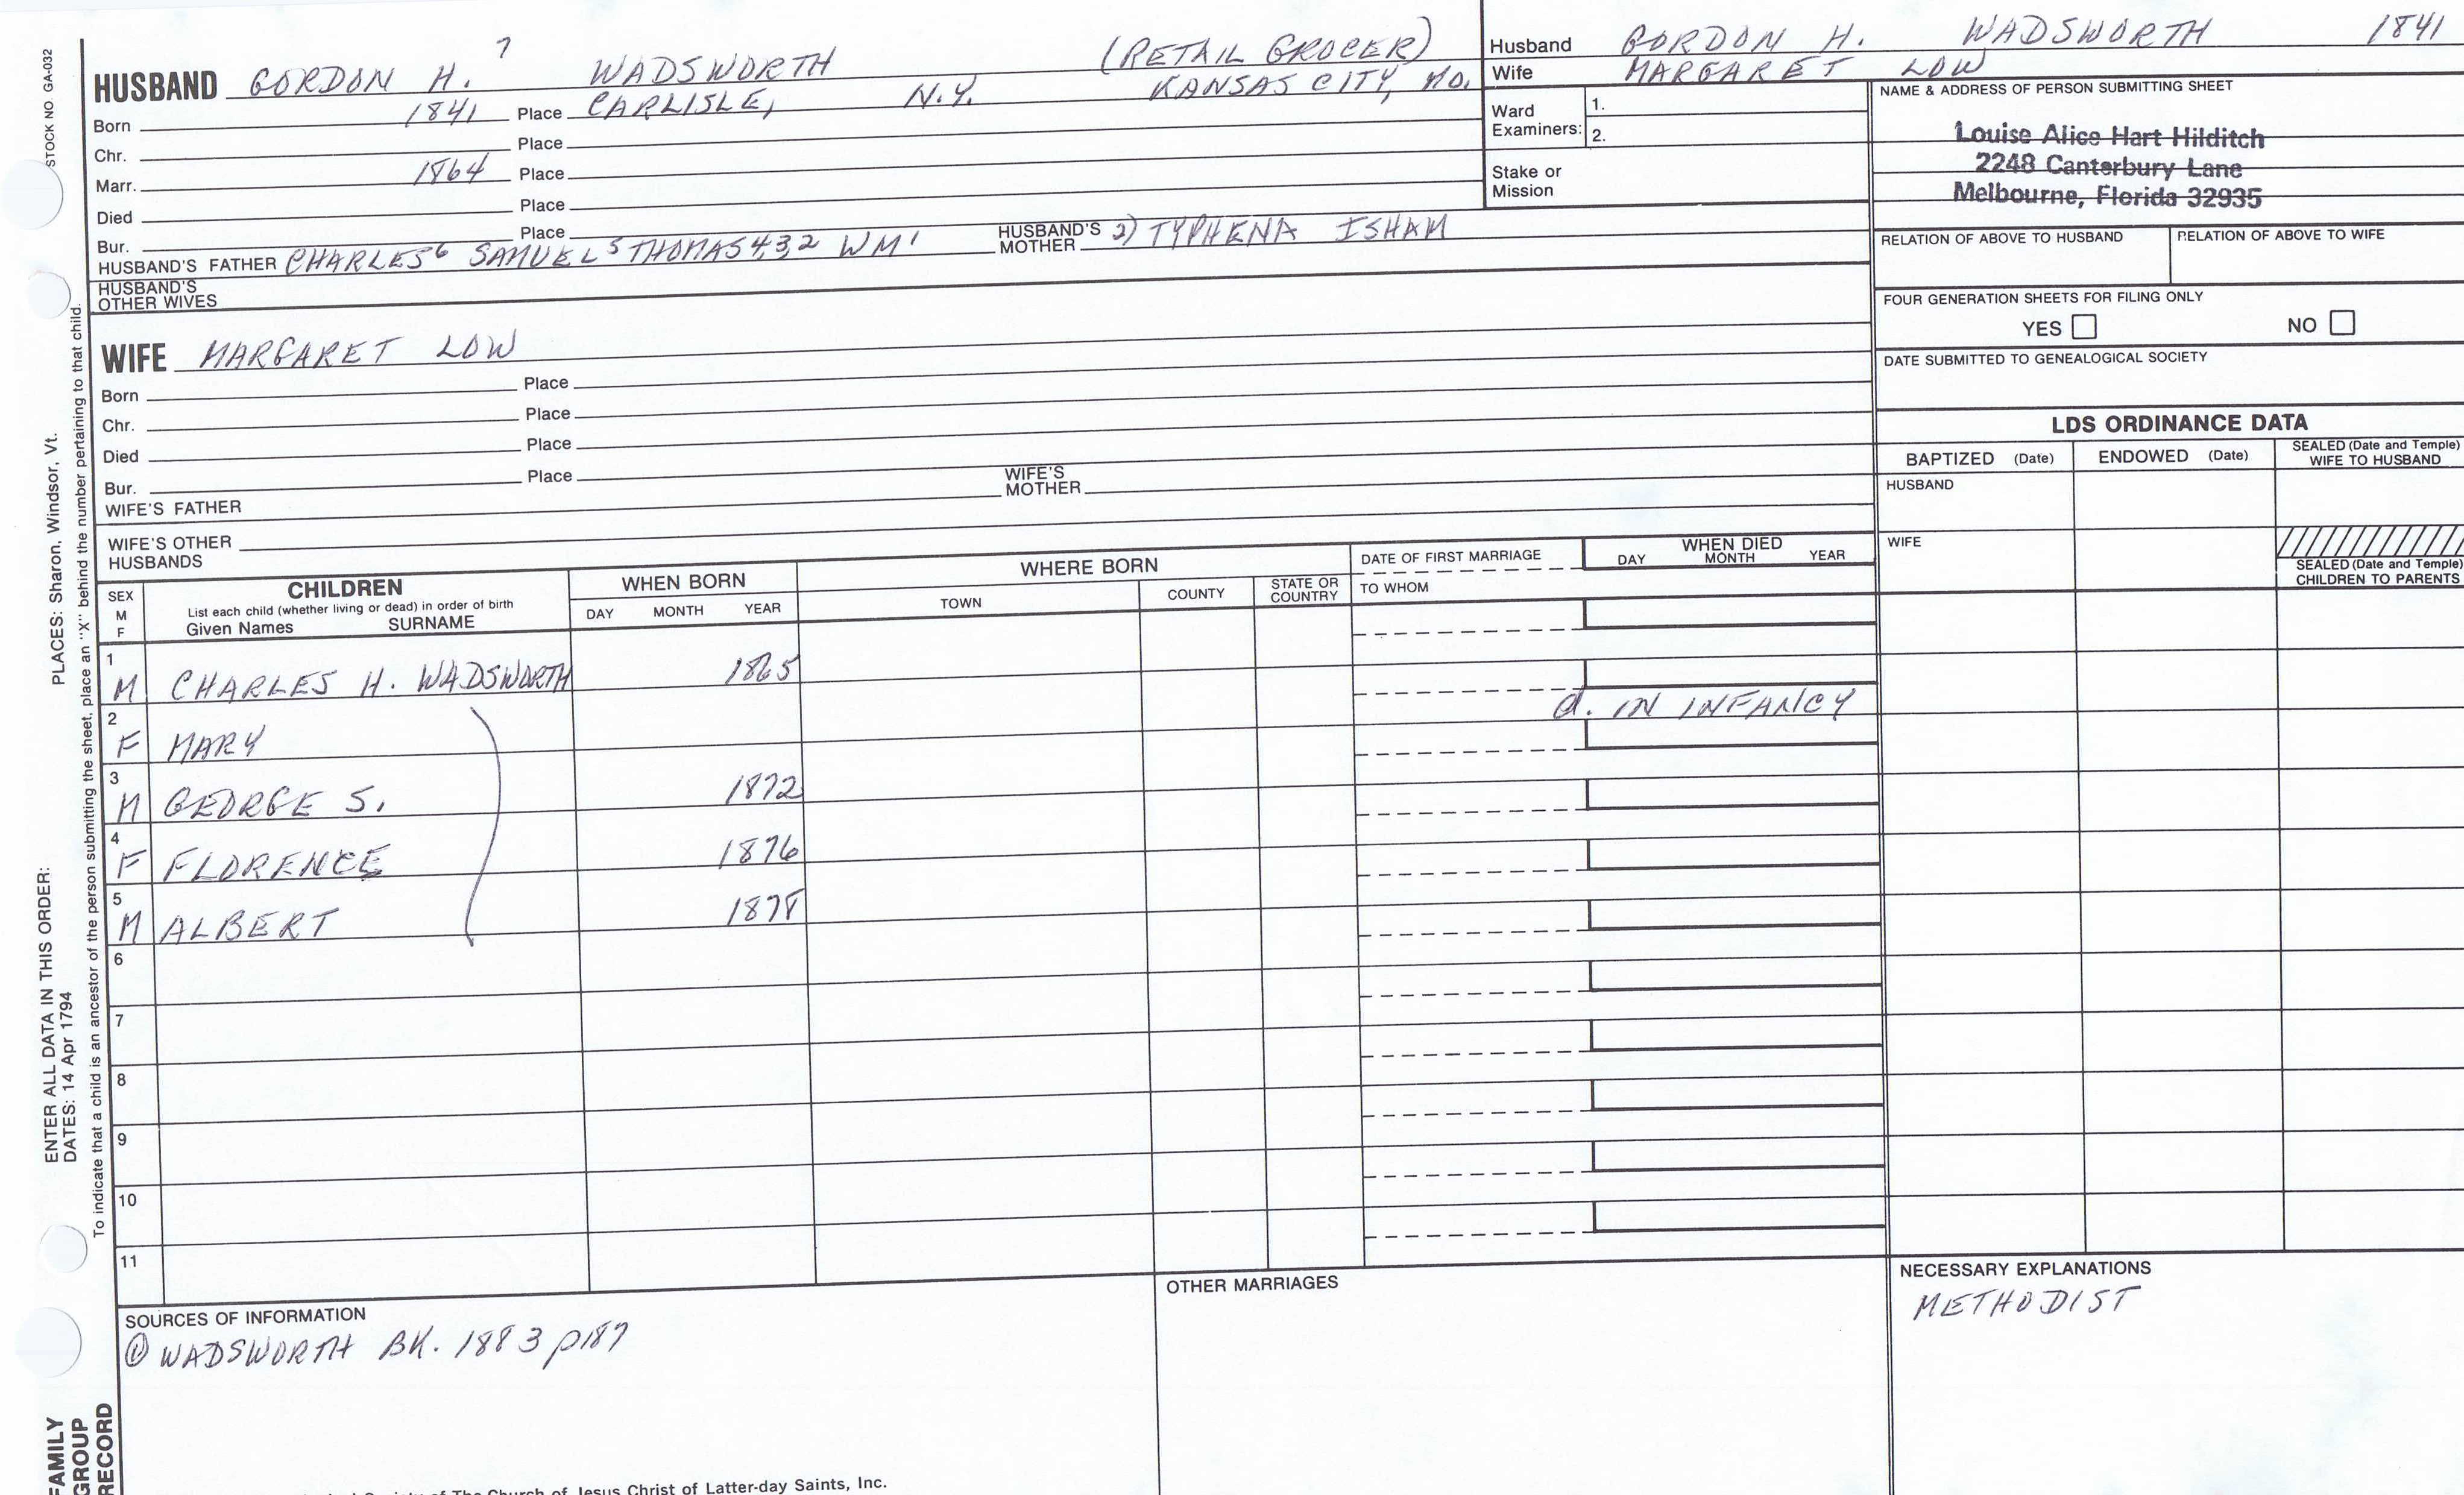 STOCK NO GA-032
PLACES: Sharon, Windsor, Vt.
ENTER ALL DATA IN THIS ORDER:
DATES: 14 Apr 1794
To indicate that a child is an ancestor of the person submitting the sheet, place an "X" behind the number pertaining to that child.
FAMILY GROUP RECORD
HUSBAND GORDON H. 7 WADSWORTH (RETAIL GROCER)
Born 1841 Place CARLISLE, N.Y. KANSAS CITY, MO.
Chr. Place
Marr. 1864 Place
Died Place
Bur. Place
HUSBAND'S FATHER CHARLES6 SAMUEL5 THOMAS4,3,2 WM1 HUSBAND'S MOTHER 2) TYPHENA ISHAM
HUSBAND'S OTHER WIVES
WIFE MARGARET LOW
Born Place
Chr. Place
Died Place
Bur. Place
WIFE'S FATHER WIFE'S MOTHER
WIFE'S OTHER HUSBANDS
Husband GORDON H. WADSWORTH 1841
Wife MARGARET LOW
Ward Examiners: 1.
2.
Stake or Mission
NAME & ADDRESS OF PERSON SUBMITTING SHEET
Louise Alice Hart Hilditch
2248 Canterbury Lane
Melbourne, Florida 32935
RELATION OF ABOVE TO HUSBAND RELATION OF ABOVE TO WIFE
FOUR GENERATION SHEETS FOR FILING ONLY
YES NO
DATE SUBMITTED TO GENEALOGICAL SOCIETY
LDS ORDINANCE DATA
BAPTIZED (Date) ENDOWED (Date) SEALED (Date and Temple) WIFE TO HUSBAND
HUSBAND
WIFE
SEALED (Date and Temple) CHILDREN TO PARENTS
SEX M F
CHILDREN
List each child (whether living or dead) in order of birth
Given Names SURNAME
WHEN BORN
DAY MONTH YEAR
WHERE BORN
TOWN COUNTY STATE OR COUNTRY
DATE OF FIRST MARRIAGE
TO WHOM
WHEN DIED
DAY MONTH YEAR
1 M CHARLES H. WADSWORTH 1865
2 F MARY d. IN INFANCY
3 M GEORGE S. 1872
4 F FLORENCE 1876
5 M ALBERT 1878
6
7
8
9
10
11
SOURCES OF INFORMATION
① WADSWORTH BK. 1883 p187
OTHER MARRIAGES
NECESSARY EXPLANATIONS
METHODIST
Society of The Church of Jesus Christ of Latter-day Saints, Inc.